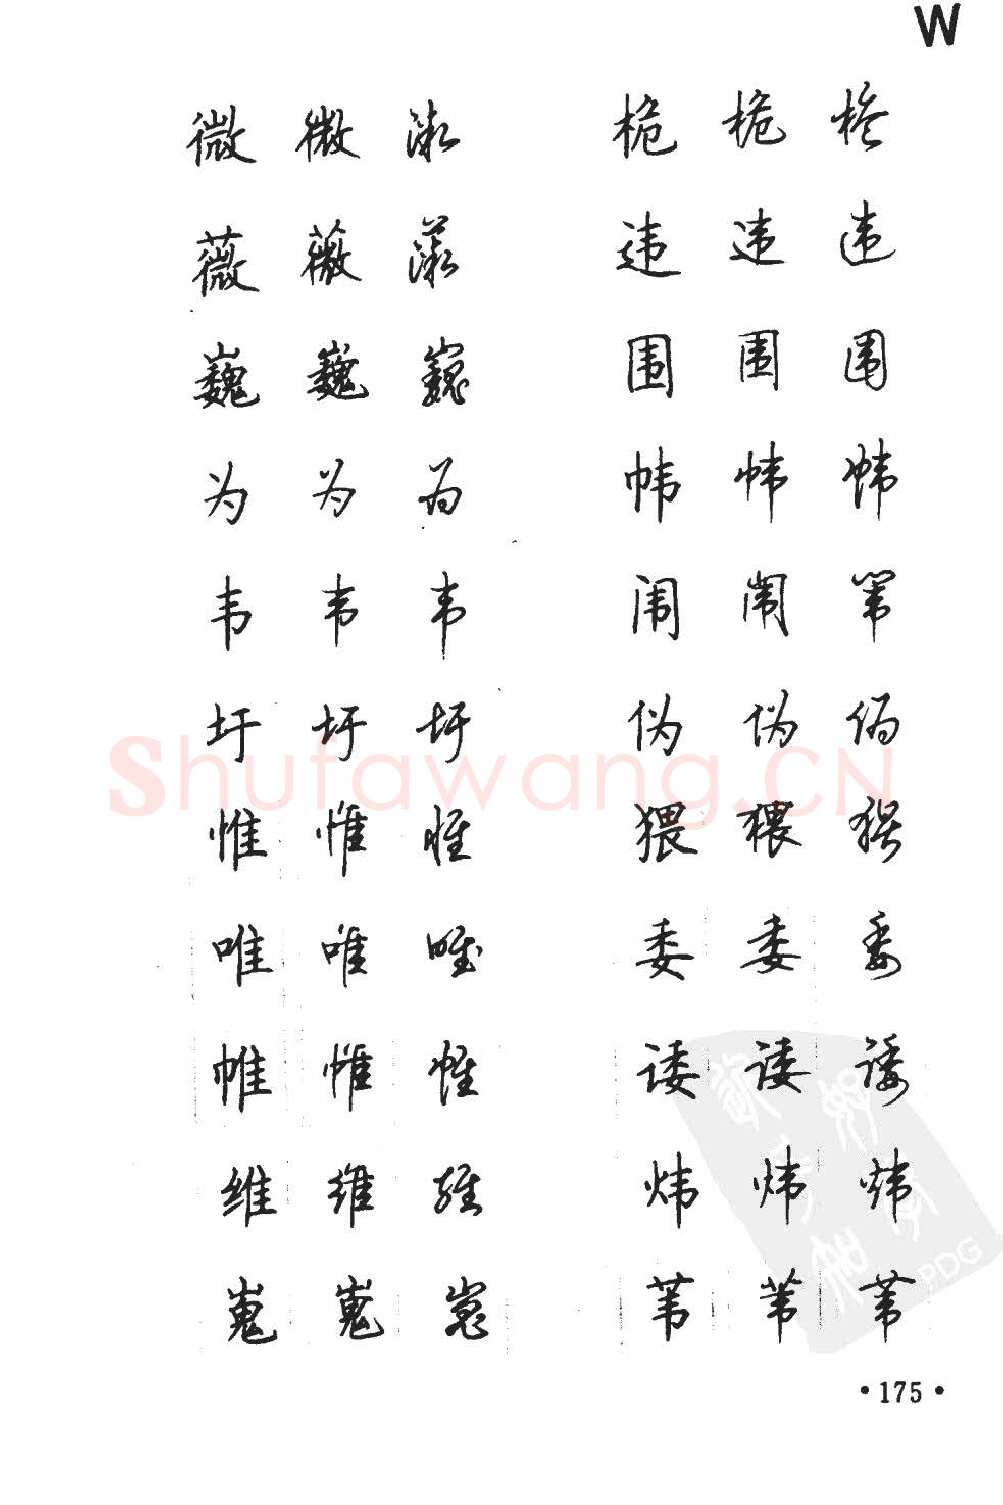 W
微 微 微 桅 桅 桅
薇 薇 薇 违 违 违
巍 巍 巍 围 围 围
为 为 为 帏 帏 帏
韦 韦 韦 闱 闱 闱
圩 圩 圩 伪 伪 伪
惟 惟 惟 猥 猥 猥
唯 唯 唯 委 委 委
帷 帷 帷 诿 诿 诿
维 维 维 炜 炜 炜
嵬 嵬 嵬 苇 苇 苇
Shufawang.CN
PDG
·175·